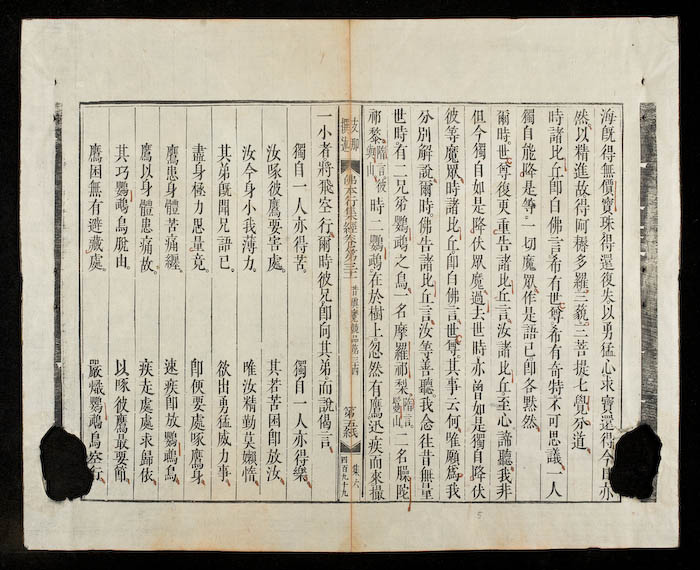 海既得無價寶珠得還復失以勇猛心求寶還得今日亦
然以精進故得阿耨多羅三藐三菩提七覺分道
時諸比丘即白佛言希有世尊希有奇特不可思議一人
獨自能降是等一切魔眾作是語已即各默然
爾時世尊復更重告諸比丘言汝諸比丘至心諦聽我非
但今獨自如是降伏眾魔過去世時亦曾如是獨自降伏
彼等魔眾時諸比丘即白佛言世尊其事云何唯願為我
分別解說爾時佛告諸比丘言汝等善聽我念往昔無量
世時有二兄弟鸚鵡之鳥一名摩羅祁梨隋言鬘山二名臊陀
祁黎隋言彼與山時二鸚鵡在於樹上忽然有鷹迅疾而來撮
支那撰述 佛本行集經卷第三十一 昔與魔競品第三十四 第五紙 集六 四百九十九
一小者將飛空行爾時彼兄即向其弟而說偈言
獨自一人亦得苦 獨自一人亦得樂
汝啄彼鷹要害處 其若苦困即放汝
汝今身小我薄力 唯汝精勤莫嬾惰
其弟既聞兄語已 欲出勇猛威力事
盡身極力思量竟 即便要處啄鷹身
鷹患身體苦痛纏 速疾即放鸚鵡鳥
鷹以身體患痛故 疾走處處求歸依
其巧鸚鵡鳥脫由 以啄彼鷹最要節
鷹困無有避藏處 嚴熾鸚鵡鳥空行